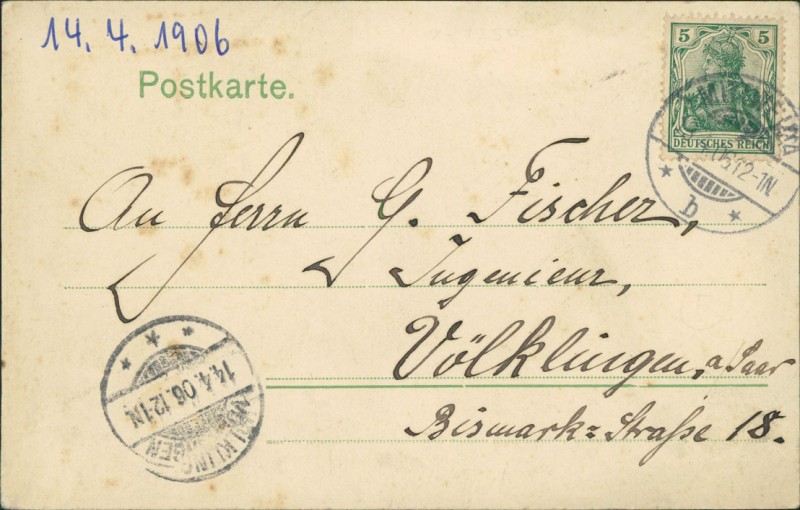 14. 4. 1906
Postkarte.
5 5
DEUTSCHES REICH
12-1N.
b
An Herrn G. Fischer,
Ingenieur,
Völklingen, a Saar
Bismark=Straße 18.
14.4.06.12-1N.
VÖLKLINGEN